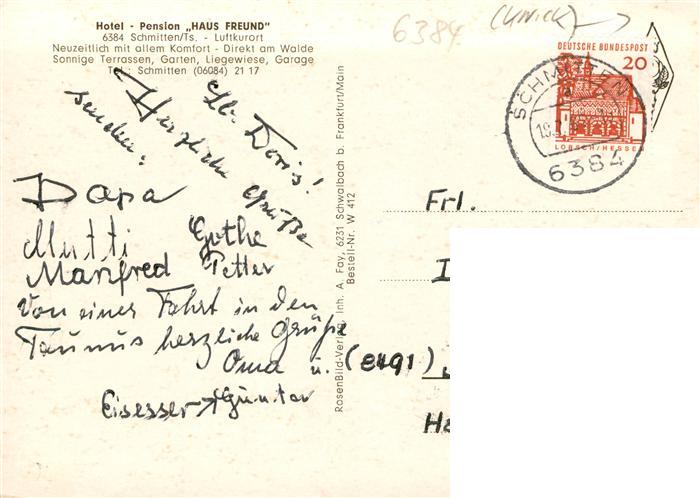 Hotel - Pension „HAUS FREUND"
6384 Schmitten/Ts. - Luftkurort
Neuzeitlich mit allem Komfort - Direkt am Walde
Sonnige Terrassen, Garten, Liegewiese, Garage
Tel.: Schmitten (06084) 21 17
6384
DEUTSCHE BUNDESPOST
20
LORSCH/HESSEN
SCHMITTEN
6384
Lb. Doris!
Herzliche Grüße
senden:
Papa
Mutti Gothe
Manfred Petter
Von einer Fahrt in den
Taunus herzliche Grüße
Oma u.
Eisesser → Günter
RosenBild-Verlag, Inh. A. Fay, 6231 Schwalbach b. Frankfurt/Main
Bestell-Nr. W 412
Frl.
(8491)